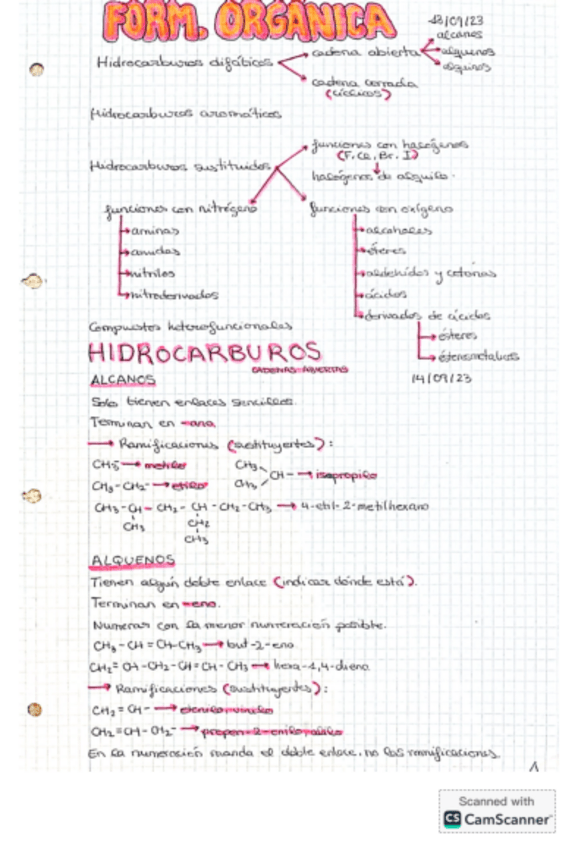 FORM. ORGÁNICA
13/09/23
Hidrocarburos difáticos
cadena abierta
alcanos
alquenos
alquinos
cadena cerrada
(cíclicos)
Hidrocarburos aromáticos
Hidrocarburos sustituidos
funciones con halógenos
(F, Cl, Br, I)
halógenos de alquilo.
funciones con nitrógeno
aminas
amidas
nitrilos
nitroderivados
funciones con oxígeno
alcoholes
éteres
aldehídos y cetonas
ácidos
derivados de ácidos
ésteres
Compuestos heterofuncionales
HIDROCARBUROS
CADENAS ABIERTAS
14/09/23
ALCANOS
Solo tienen enlaces sencillos.
Terminan en -ano
→ Ramificaciones (sustituyentes):
CH3- → metilo
CH3-CH2- → etilo
CH3
CH3
CH- → isopropilo
CH3-CH-CH2-CH-CH2-CH3 → 4-etil-2-metilhexano
CH3
CH2
CH3
ALQUENOS
Tienen algún doble enlace (indicar dónde está).
Terminan en -eno.
Numerar con la menor numeración posible.
CH3-CH=CH-CH3 → but-2-eno
CH2=CH-CH2-CH=CH-CH3 → hexa-1,4-dieno
→ Ramificaciones (sustituyentes):
CH2=CH- → etenilo-vinilo
CH2=CH-CH2- → propen-2-enilo-alilo
En la numeración manda el doble enlace, no las ramificaciones.
Scanned with
CS CamScanner